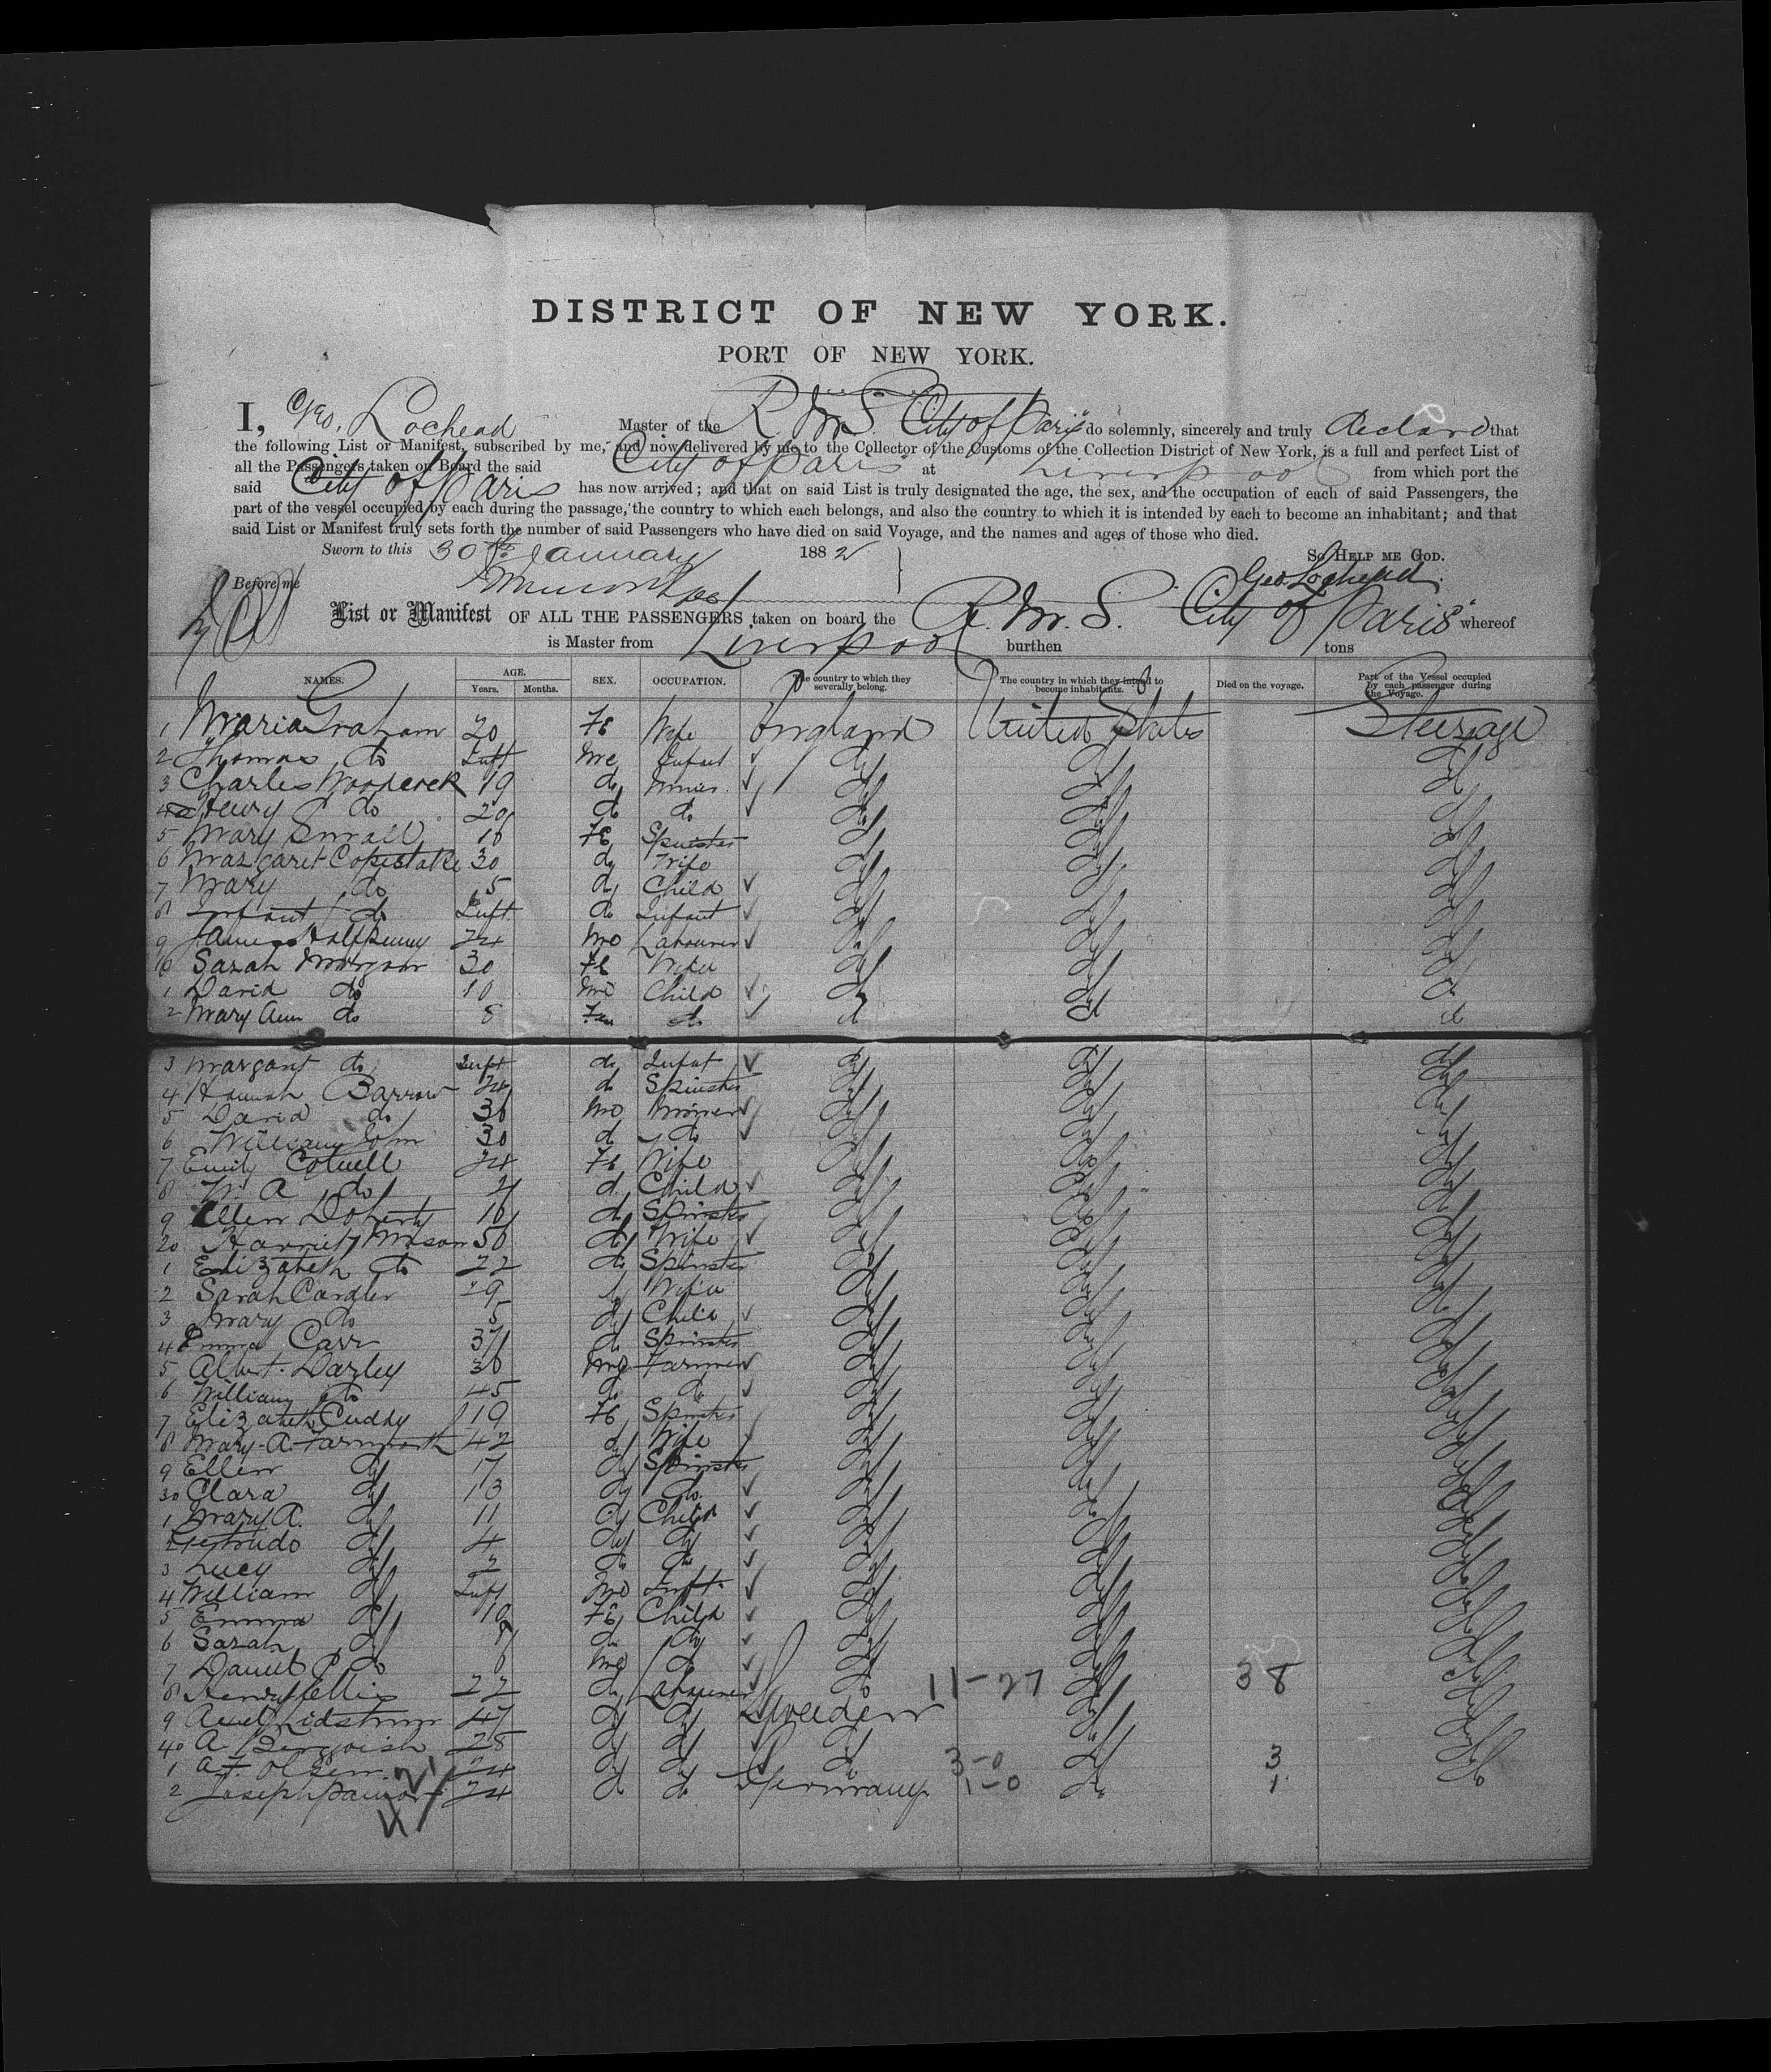 DISTRICT OF NEW YORK.
PORT OF NEW YORK.
I, Geo. Lochead Master of the R. M. S. City of Paris do solemnly, sincerely and truly declare that
the following List or Manifest, subscribed by me, and now delivered by me to the Collector of the Customs of the Collection District of New York, is a full and perfect List of
all the Passengers taken on Board the said City of Paris at Liverpool from which port the
said City of Paris has now arrived; and that on said List is truly designated the age, the sex, and the occupation of each of said Passengers, the
part of the vessel occupied by each during the passage, the country to which each belongs, and also the country to which it is intended by each to become an inhabitant; and that
said List or Manifest truly sets forth the number of said Passengers who have died on said Voyage, and the names and ages of those who died.
Sworn to this 30th January 1882 So HELP ME GOD.
Before me Geo. Lochead
List or Manifest OF ALL THE PASSENGERS taken on board the R. M. S. City of Paris whereof
is Master from Liverpool burthen tons
NAMES. AGE. Years. Months. SEX. OCCUPATION. The country to which they severally belong. The country in which they intend to become inhabitants. Died on the voyage. Part of the Vessel occupied by each passenger during the Voyage.
1 Maria Graham 20 Fe Wife England United States Steerage
2 Thomas do Inft Me Infant do do do
3 Charles Woodcock 19 do Miner do do do
4 Henry do 20 do do do do do
5 Mary Small 18 Fe Spinster do do do
6 Margaret Copestake 30 do Wife do do do
7 Mary do 5 do Child do do do
8 Infant do Inft do Infant do do do
9 James Halfpenny 24 Me Labourer do do do
10 Sarah Morgan 30 Fe Wife do do do
1 David do 10 Me Child do do do
2 Mary Ann do 8 Fe do do do do
3 Margaret do Inft do Infat do do do
4 Hannah Barrow 24 do Spinster do do do
5 David do 36 Me Miner do do do
6 William John 30 do do do do do
7 Emily Cotwell 24 Fe Wife do do do
8 W. A do 2 do Child do do do
9 Ellen Doherty 18 do Spinster do do do
20 Harriet Mason 50 do Wife do do do
1 Elizabeth do 22 do Spinster do do do
2 Sarah Candler 29 do Wife do do do
3 Mary do 5 do Child do do do
4 Emma Carr 37 do Spinster do do do
5 Albert Darley 30 Me Farmer do do do
6 William do 45 do do do do do
7 Elizabeth Cuddy 19 Fe Spinster do do do
8 Mary A. Farnworth 42 do Wife do do do
9 Ellen do 17 do Spinster do do do
30 Clara do 13 do do do do do
1 Mary A. do 11 do Child do do do
2 Gertrude do 4 do do do do do
3 Lucy do 2 do do do do do
4 William do Inft Me Inft do do do
5 Emma do 10 Fe Child do do do
6 Sarah do 9 do do do do do
7 Daniel P. do 6 Me do do do do
8 Henry Ellis 22 do Labourer do 11-27 do 38 do
9 Axel Lidstrom 47 do do Sweden do do
40 A 28 do do do do do
1 A F Olsen 24 do do do 3-0 do 3 do
2 Joseph 24 do do Germany 1-0 do 1 do